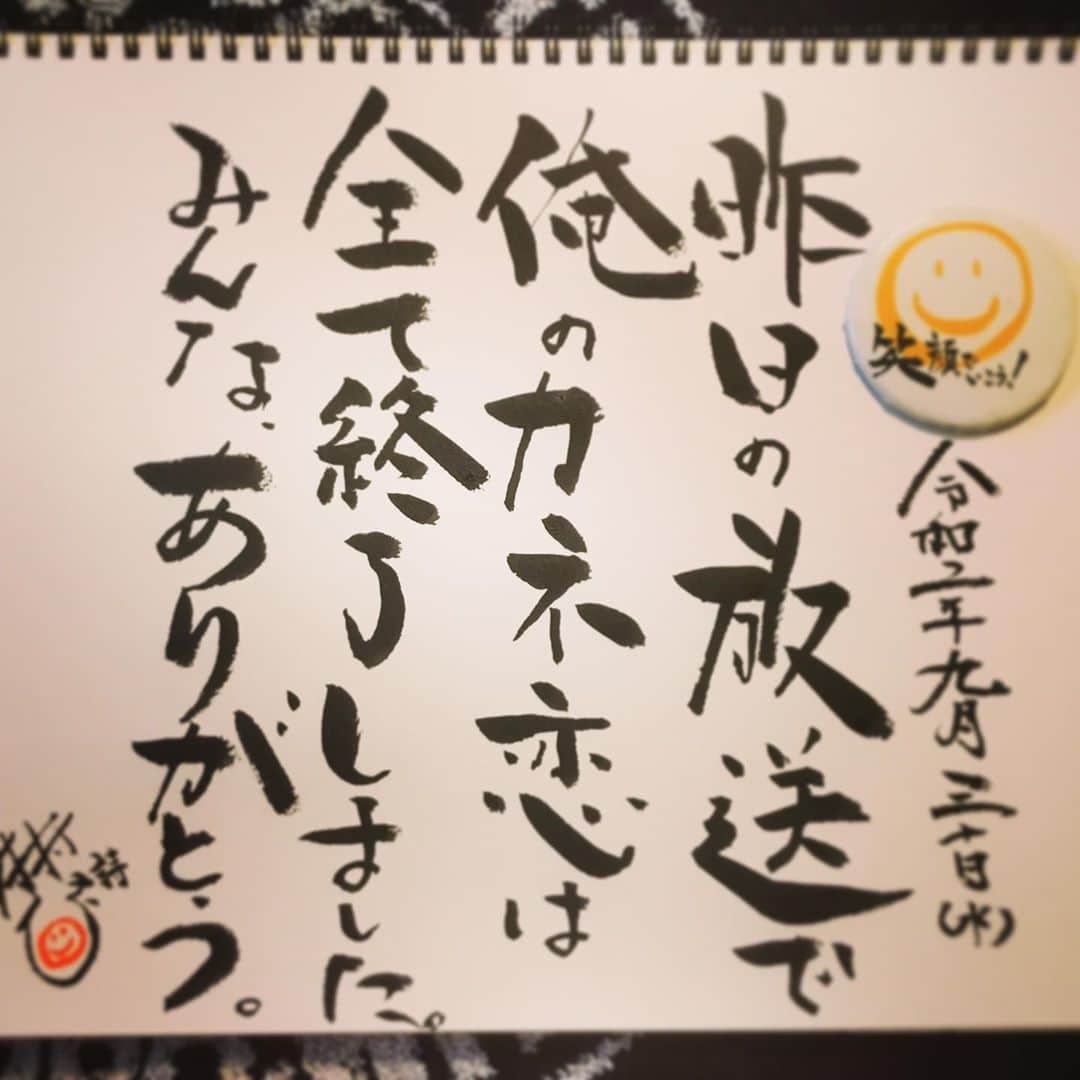 笑顔でいこう!
令和二年九月三十日(水)
昨日の放送で
俺のカネ恋は
全て終了しました。
みんな、ありがとう。